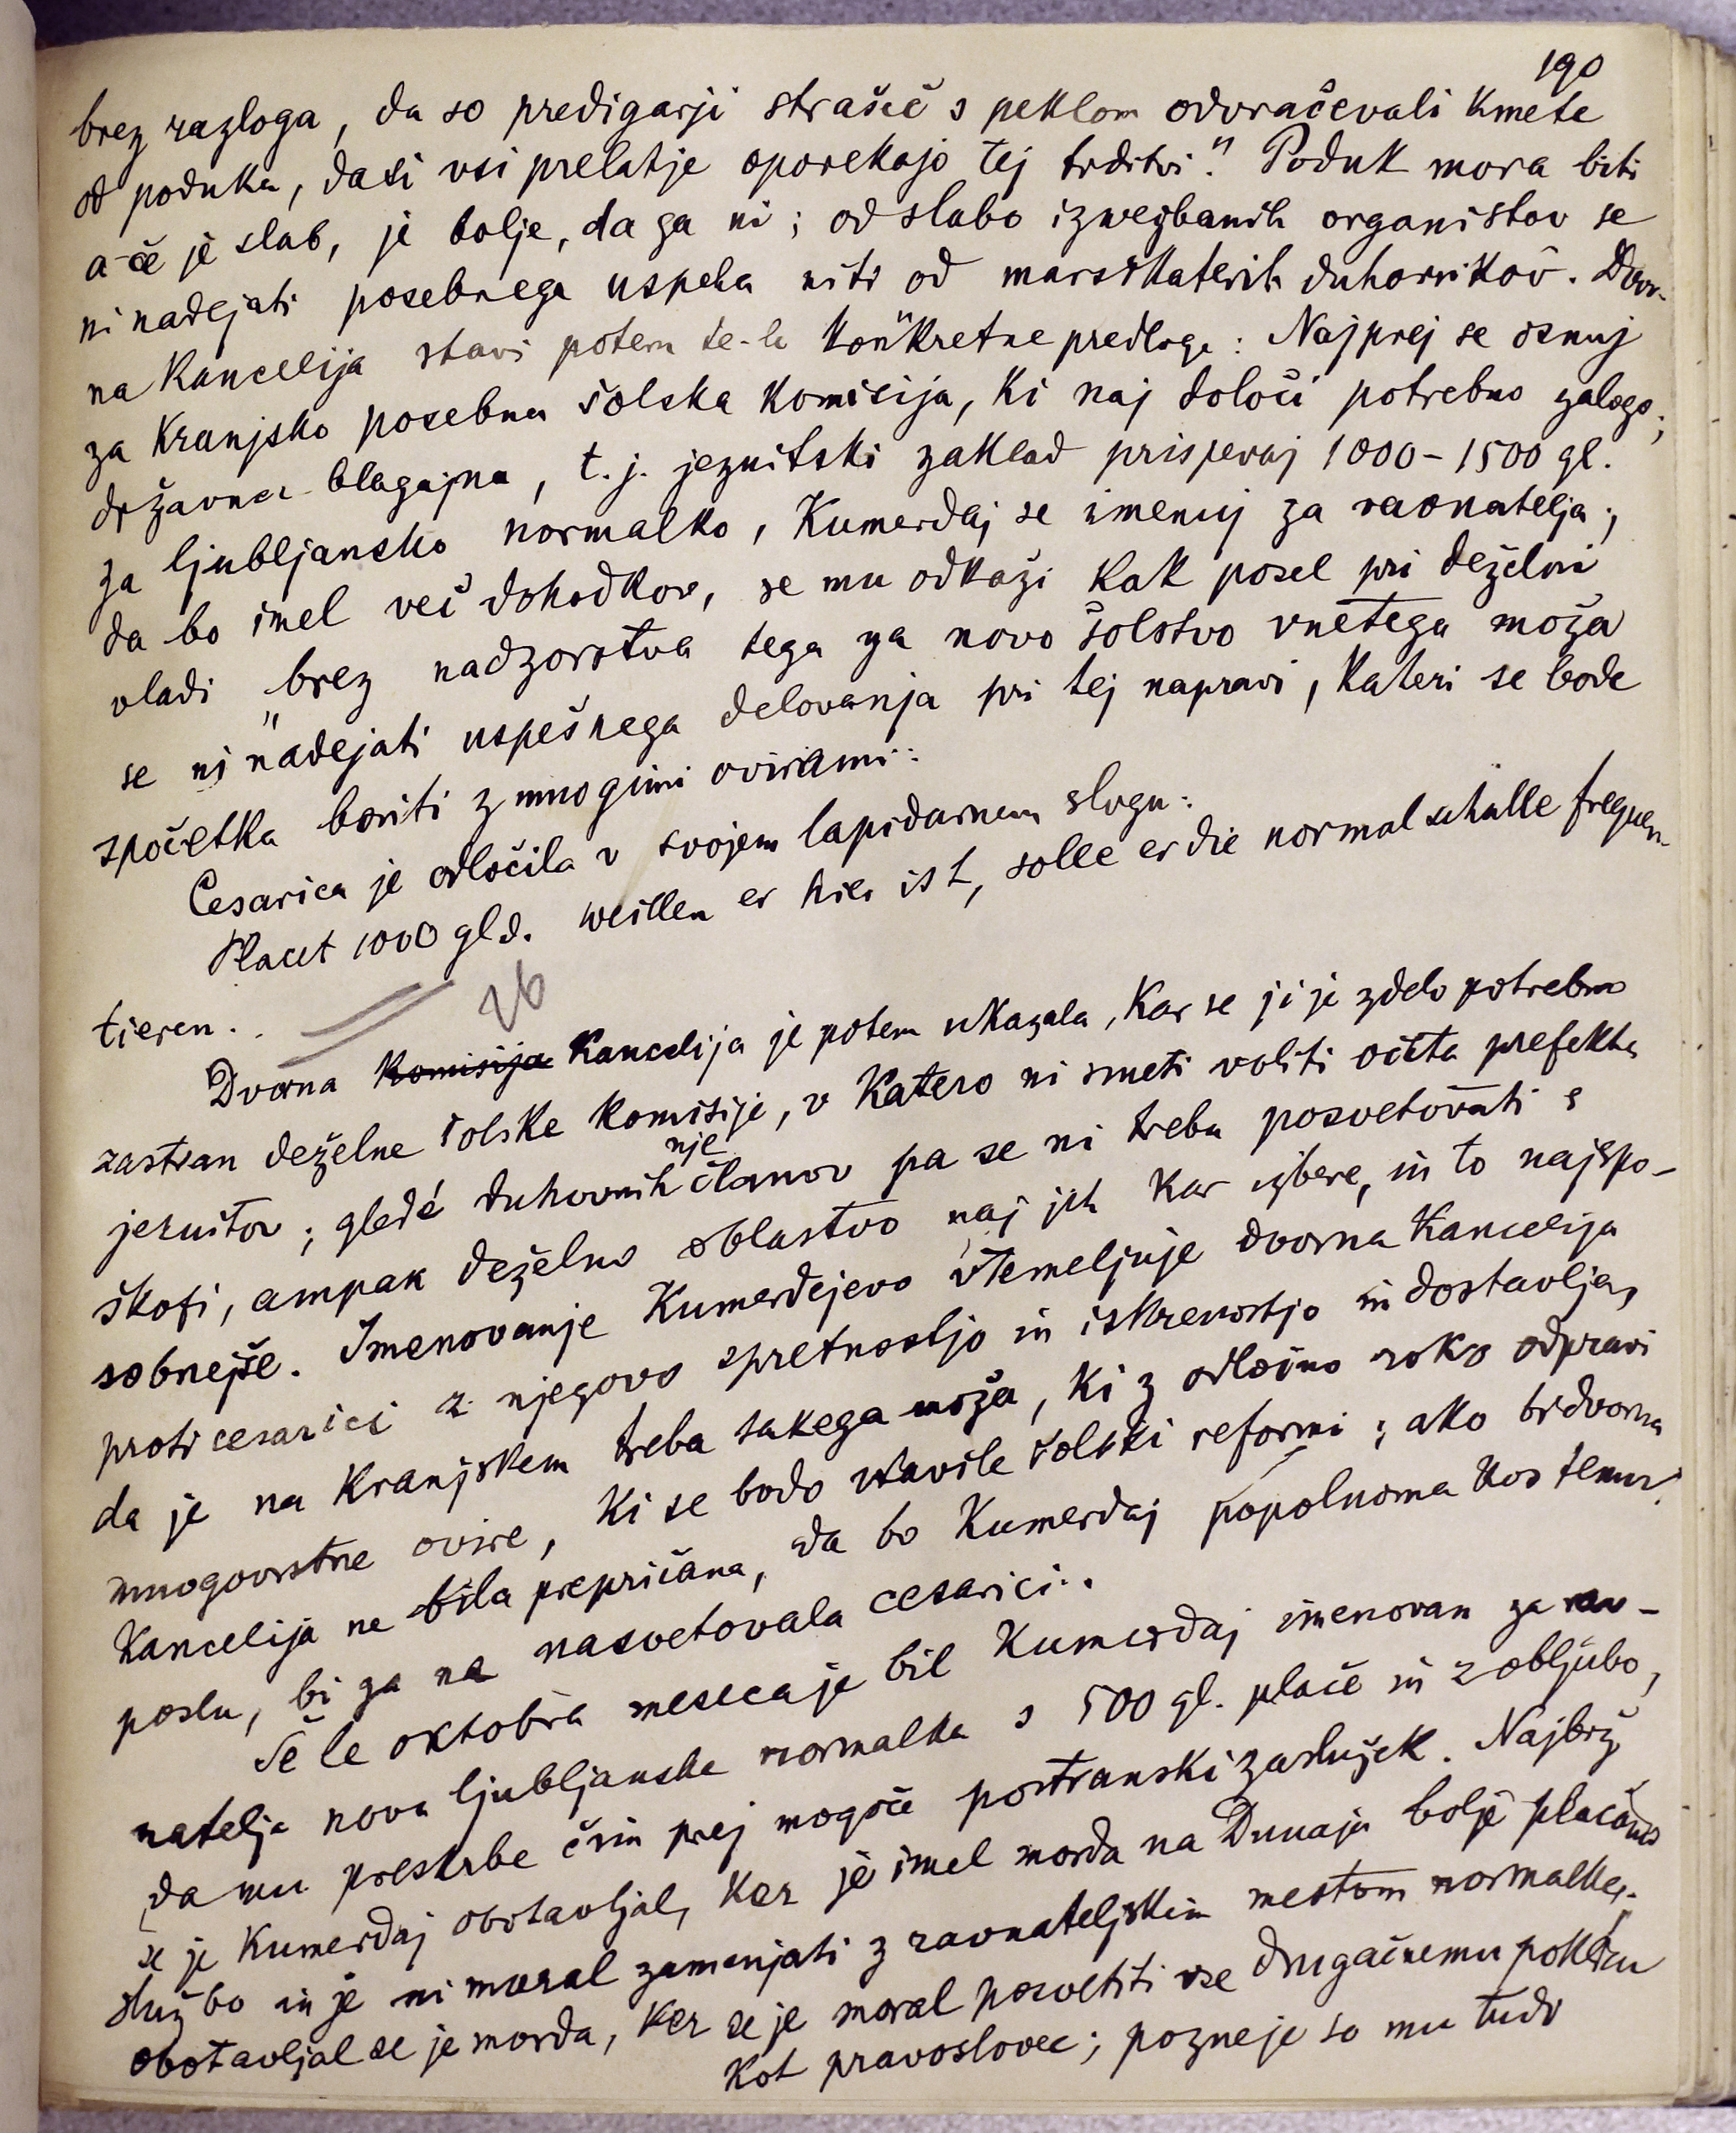 190
brez razloga, da so predigarji strašeč s peklom odvračevali kmete
od poduka, dasi vsi prelatje oporekajo tej trditvi." Poduk mora biti
a če je slab, je bolje, da ga ni; od slabo izvezbanih organistov se
ni nadejati posebnega uspeha niti od marsikaterih duhovnikov. Dvor-
na kancelija stavi potem te-le konkretne predloge: Najprej se osnuj
za Kranjsko posebna šolska komisija, ki naj določi potrebno zalogo;
državna blagajna, t.j. jezuitski zaklad prispevaj 1000-1500 gl.
za ljubljansko normalko, Kumerdaj se imenuj za ravnatelja;
da bo imel več dohodkov, se mu odkaži kak posel pri deželni
vladi "brez nadzorstva tega za novo šolstvo vnetega moža
se ni nadejati uspešnega delovanja pri tej napravi, kateri se bode
spočetka boriti z mnogimi ovirami:
Cesarica je odločila v svojem lapidarnem slogu:
Placet 1000 gld. weillen er hier ist, solle er die normal schulle frequen-
tieren.
26
Dvorna komisija kancelija je potem ukazala, kar se ji je zdelo potrebno
zastran deželne šolske komisije, v katero ni smeti voliti očeta prefekta
jezuitov; gledé duhovnih članov nje pa se ni treba posvetovati s
škofi, ampak deželno oblastvo naj jih kar izbere, in to najspo-
sobnejše. Imenovanje Kumerdejevo utemeljuje dvorna kancelija
proti cesarici z njegovo spretnostjo in iskrenostjo in dostavlja,
da je na Kranjskem treba takega moža, ki z odločno roko odpravi
mnogovrstne ovire, ki se bodo stavile šolski reformi; ako bi dvorna
kancelija ne bila prepričana, da bo Kumerdaj popolnoma kos temu
poslu, bi ga ne nasvetovala cesarici.
Še le oktobra meseca je bil Kumerdaj imenovan za rav-
natelja nove ljubljanske normalke s 500 gl. plače in z obljubo,
da mu preskrbe čim prej mogoče postranski zaslužek. Najbrž
se je Kumerdaj obotavljal, ker je imel morda na Dunaju bolje plačano
službo in je ni moral zamenjati z ravnateljskim mestom normalke;
obotavljal se je morda, ker se je moral posvetiti vse drugačnemu poklicu
kot pravoslovec; pozneje so mu tudi